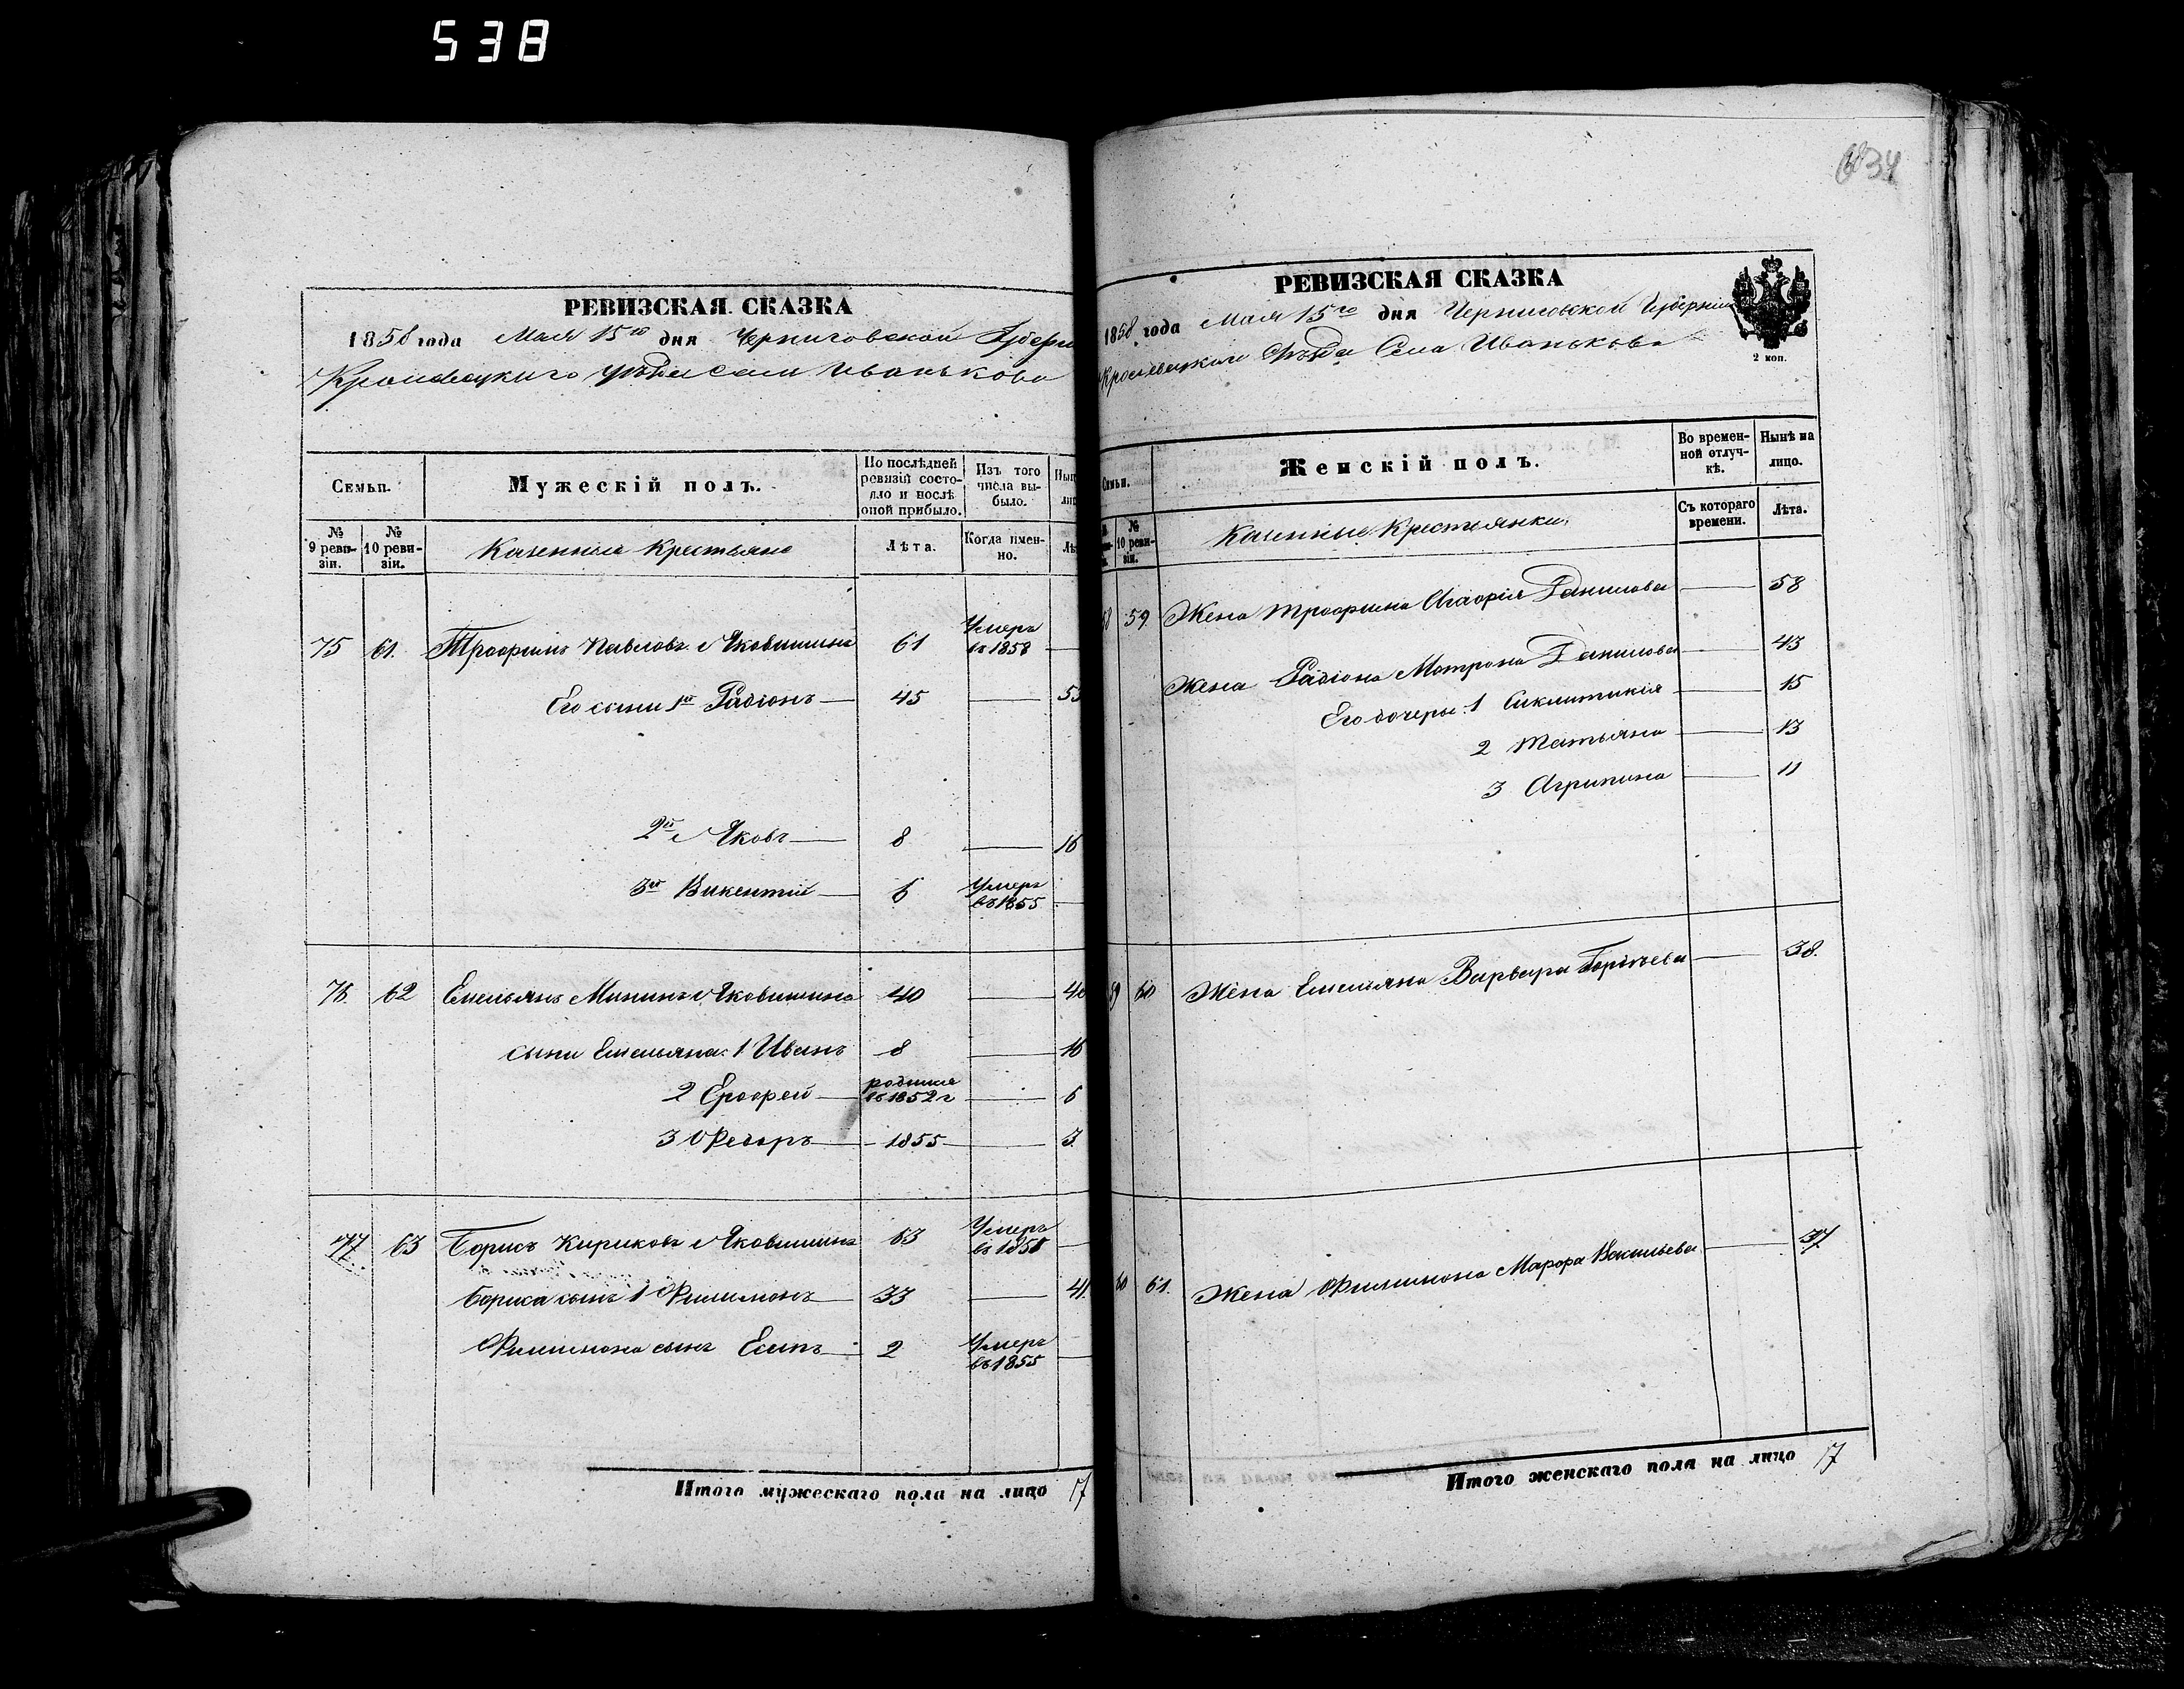 538
634
РЕВИЗСКАЯ СКАЗКА
1858 года Мая 15го дня Черниговской Губерн
Кролевецкого уѣзда села Иванькова
Семьи.
Мужескій полъ.
По послѣдней ревизіи состояло и послѣ оной прибыло.
Изъ того числа выбыло.
№ 9 ревизіи.
№ 10 ревизіи.
Казенные Крестьяне
Лѣта.
Когда именно.
75 61. Трофимъ Павловъ Яковишинъ 61 Умеръ въ 1858
Его сыни 1й Радіонъ 45 53
2й Яковъ 8 16
3й Викентій 6 Умеръ въ 1855
76. 62 Емельянъ Мининъ Яковишинъ 40 48
сыни Емельяна: 1 Иванъ 8 16
2 Ерофей родился въ 1852 г 6
3 Федоръ 1855 3.
77 63 Борисъ Кириковъ Яковишинъ 63 Умеръ въ 1858
Бориса сынъ 1 Филимонъ 33 41.
Филимона сынъ Есипъ 2 Умеръ въ 1855
Итого мужескаго пола на лицо 17
РЕВИЗСКАЯ СКАЗКА
1858 года Мая 15го дня Черниговской Губерніи
Кролевецкого уѣзда Села Иванькова
2 коп.
Семьи.
Женскій полъ.
Во временной отлучкѣ.
Нынѣ на лицо.
№ 10 ревизіи.
Казенные Крестьянки.
Съ котораго времени.
Лѣта.
58 59. Жена Трофима Агафія Данилова 58
Жена Радіона Матрона Данилова 43
Его дочеры: 1 Сиклитикія 15
2 Татьяна 13
3 Агрипина 11
59 60 Жена Емельяна Варвара 38.
60 61. Жена Филимона Марфа Васильева 37
Итого женскаго пола на лицо 17